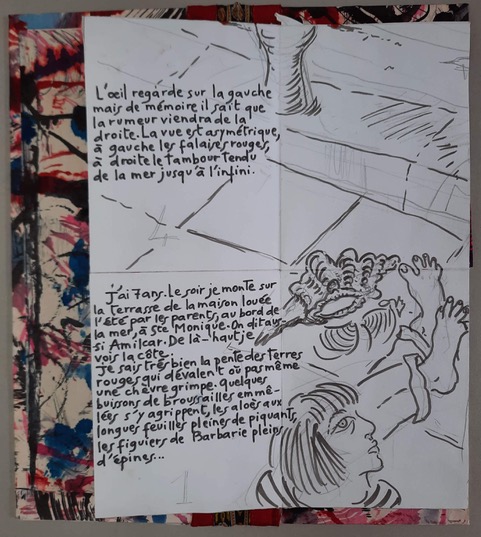 L'œil regarde sur la gauche
mais de mémoire il sait que
la rumeur viendra de la
droite. La vue est asymétrique,
à gauche les falaises rouges,
à droite le tambour tendu
de la mer jusqu'à l'infini.
j'ai 7 ans. Le soir je monte sur
la terrasse de la maison louée
l'été par les parents, au bord de
la mer, à Ste Monique. On dit aus-
si Amilcar. De là-haut je
vois la côte.
Je sais très bien la pente des terres
rouges qui dévalent où pas même
une chèvre grimpe. quelques
buissons de broussailles emmê-
lées s'y agrippent, les aloès aux
longues feuilles pleines de piquants,
les figuiers de Barbarie pleins
d'épines...
1